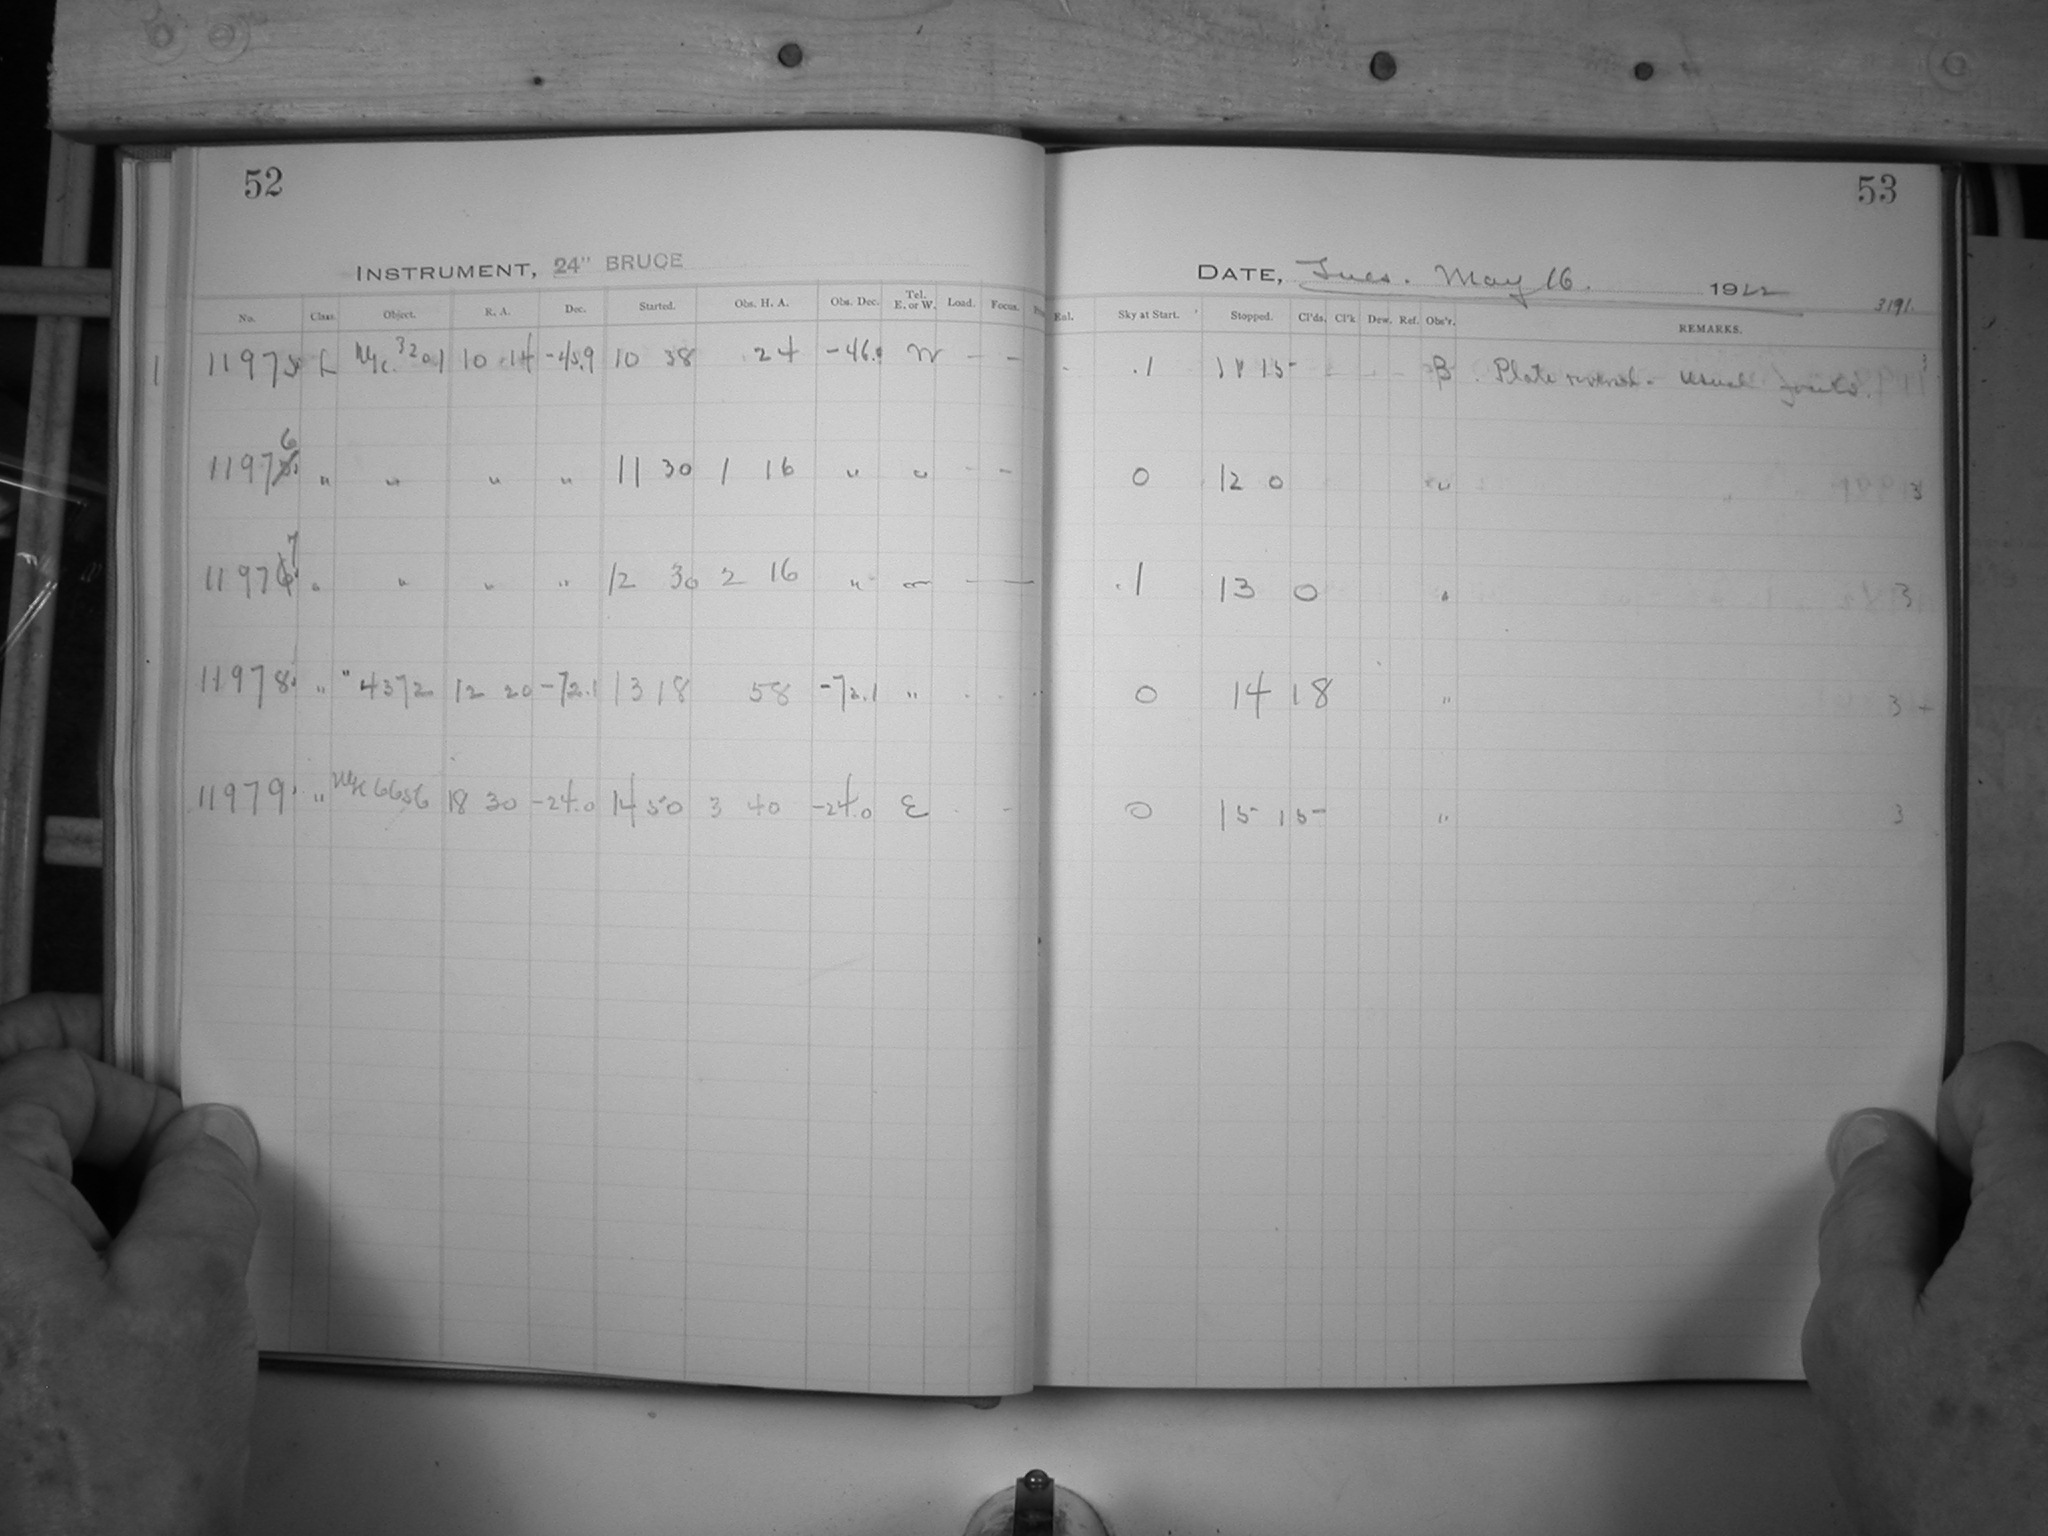 52
INSTRUMENT, 24" BRUCE
No. Class. Object. R. A. Dec. Started. Obs. H. A. Obs. Dec. Tel. E. or W. Load. Focus.
1 11975 L 3201 10 14 -45.9 10 38 24 -46.0 W - -
11976 " " " " 11 30 1 16 " " - -
11977 " " " " 12 30 2 16 " "
11978 " " 4372 12 20 -72.1 13 18 58 -72.1 "
11979 " NGC 6656 18 30 -24.0 14 50 3 40 -24.0 E -
53
DATE, Tues. May 16. 1922
3191.
Rul. Sky at Start. Stopped. Cl'ds. Cl'k Dew. Ref. Obs'r. REMARKS.
.1 11 15 B. Plate reversed. Usual 3
0 12 0 " 3
.1 13 0 " 3
0 14 18 " 3 +
0 15 15 " 3